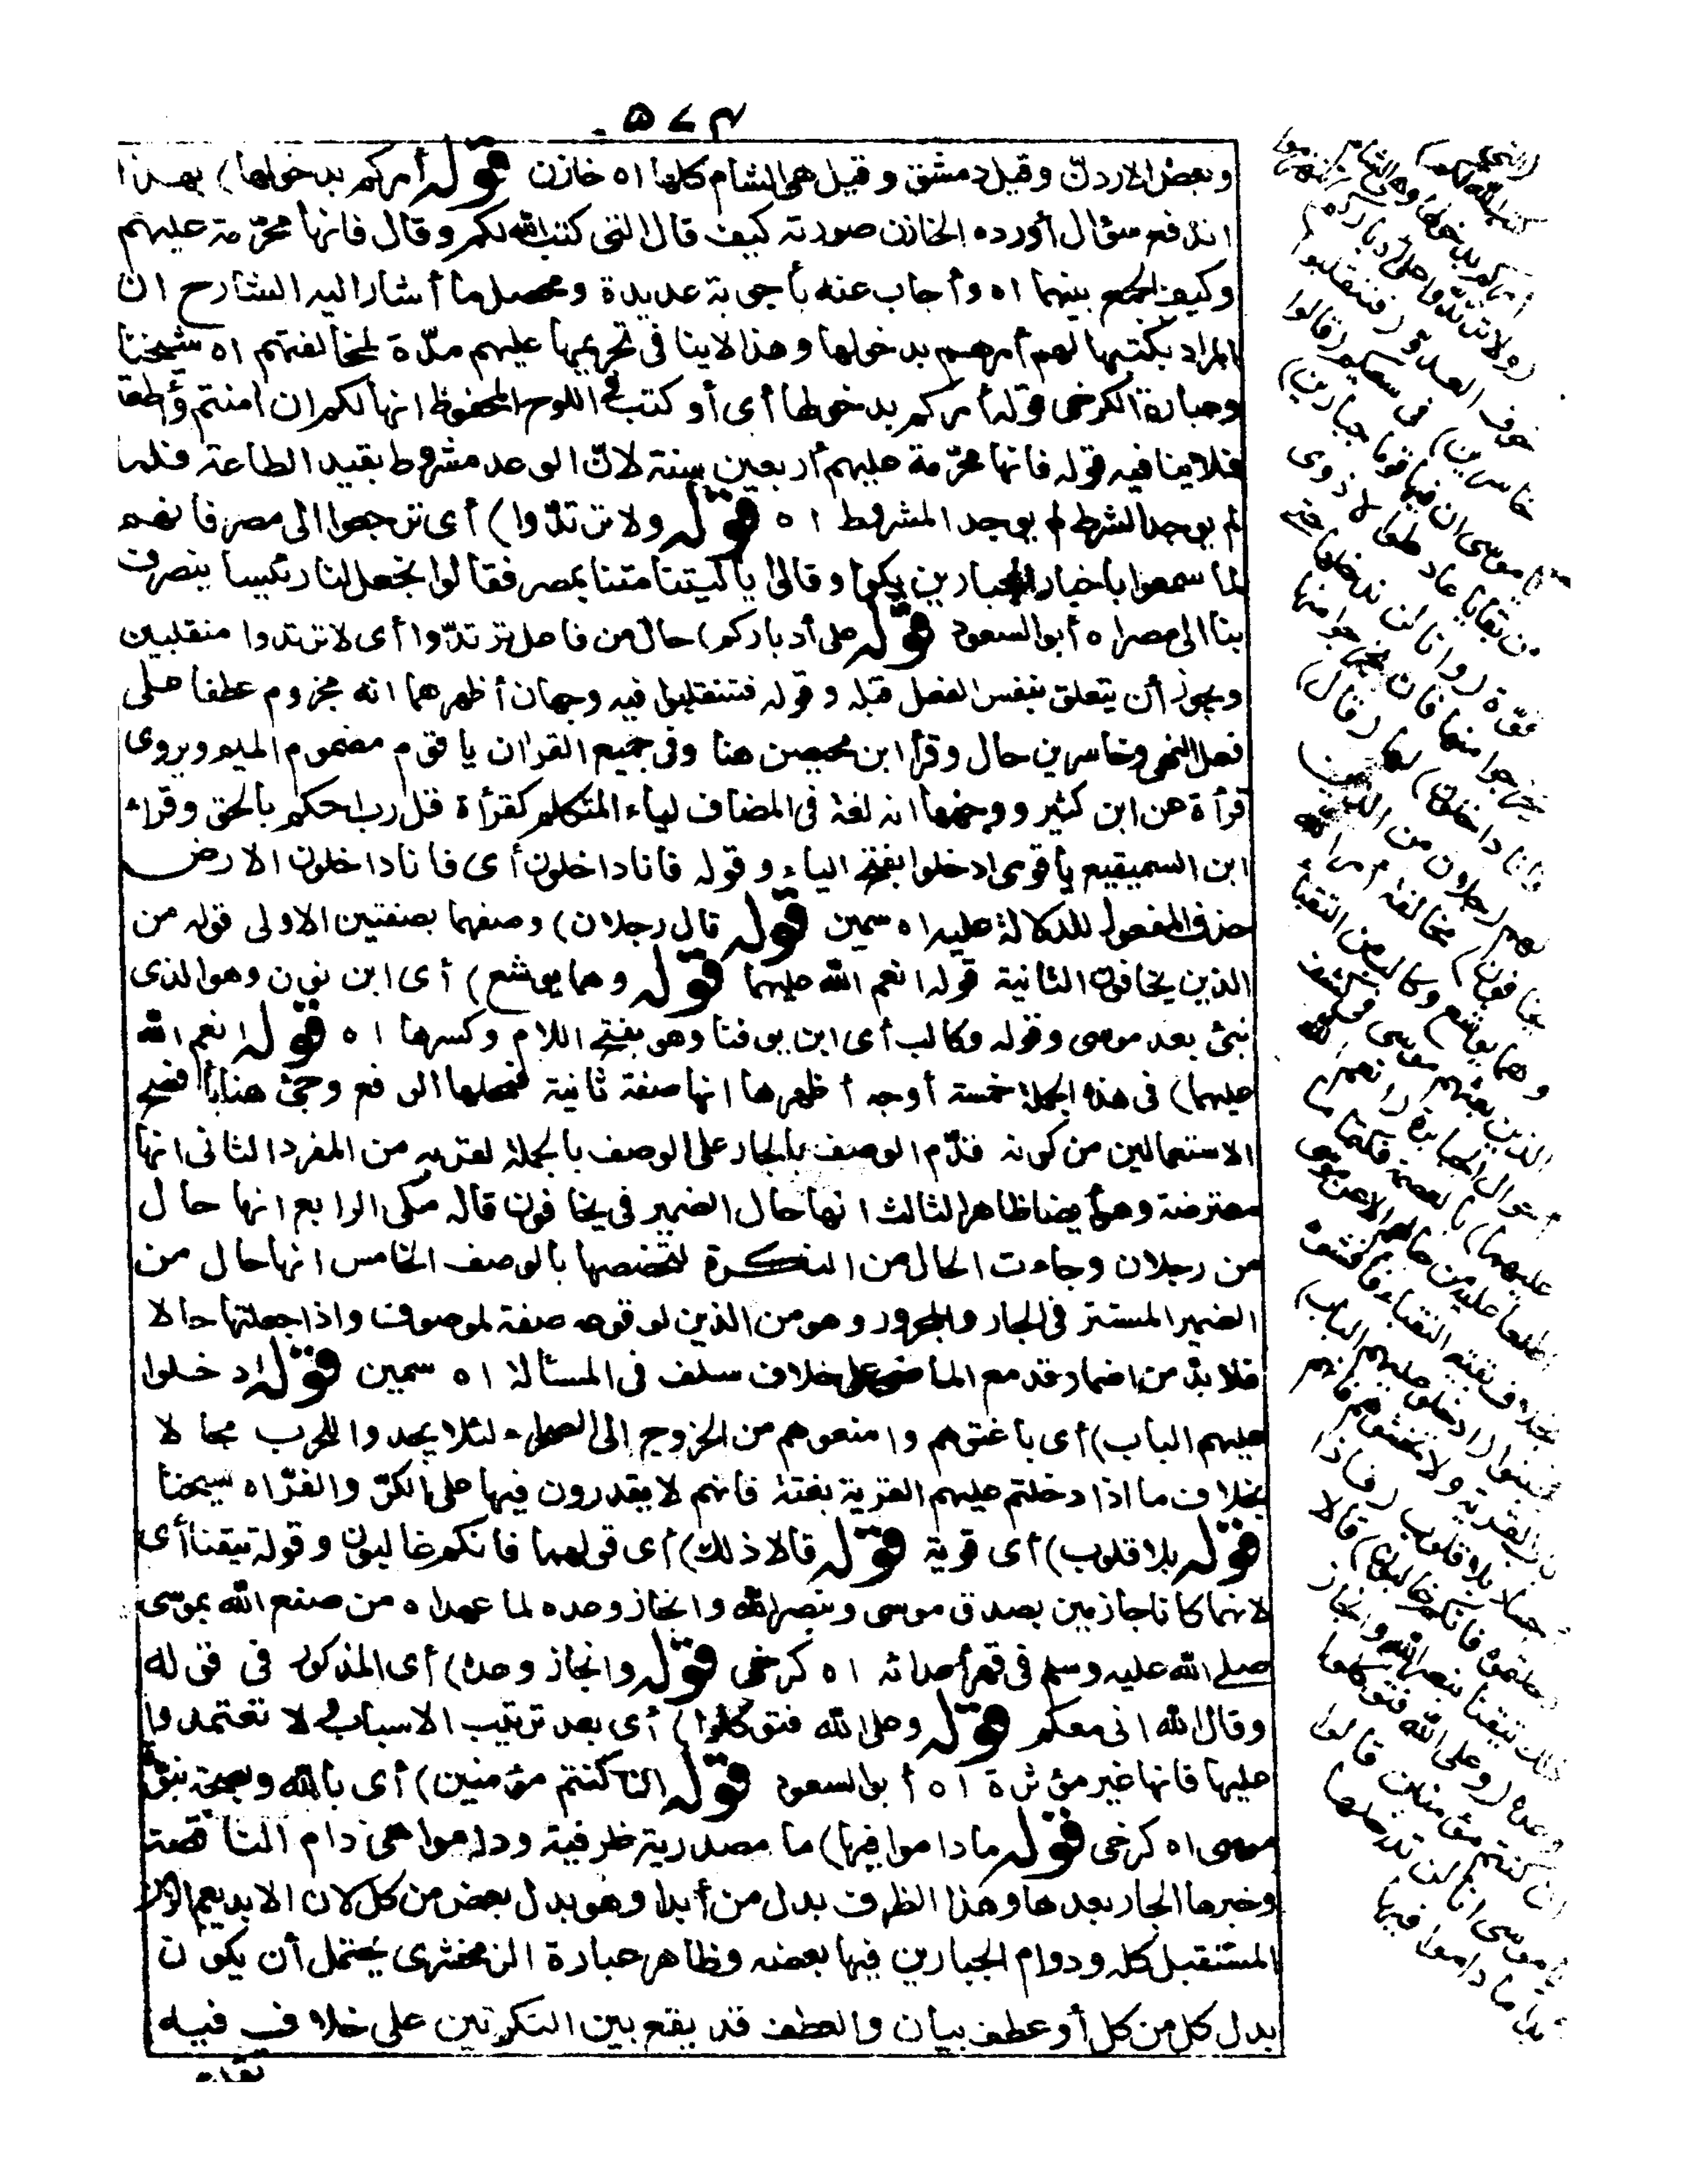 ٥٧٤
وبعض الاردن وقيل دمشق وقيل هى الشام كلها اه خازن قوله أمركم بدخولها) بهذا
اندفع سؤال أورده الخازن صورته كيف قال التى كتب الله لكم وقال فانها محرّمة عليهم
وكيف الجمع بينهما اه وأجاب عنه بأجوبة عديدة ومحصل ما أشار اليه الشارح ان
المراد بكتبها لهم أمرهم بدخولها وهذا لا ينافى تحريمها عليهم مدّة لمخالفتهم اه شيخنا
وعبارة الكرخى قوله أمركم بدخولها أى أو كتب فى اللوح المحفوظ انها لكم ان امنتم وأطعتم
فلا ينافيه قوله فانها محرّمة عليهم أربعين سنة لانّ الوعد مشروط بقيد الطاعة فلما
لم يوجد الشرط لم يوجد المشروط اه قوله ولا ترتدّوا) أى ترجعوا الى مصر فانهم
لما سمعوا باخبار الجبارين بكوا وقالوا يا ليتنا متنا بمصر فقالوا نجعل لنا رئيسا ينصرف
بنا الى مصر اه أبو السعود قوله على أدباركم) حال من فاعل ترتدّوا أى لا ترتدوا منقلبين
ويجوز أن يتعلق بنفس الفعل قبله وقوله فتنقلبوا فيه وجهان أظهرهما انه مجزوم عطفا على
فعل النهى وخاسرين حال وقرأ ابن محيصن هنا وفى جميع القران يا قوم مضموم الميم ويروى
قرأة عن ابن كثير ووجهها انه لغة فى المضاف لياء المتكلم كقرأة قل رب احكم بالحق وقراء
ابن السميقيع يا قومى ادخلوا بفتح الياء وقوله فانا داخلون أى فانا داخلون الارض
حذف المفعول للدلالة عليه اه سمين قوله قال رجلان) وصفهما بصفتين الاولى قوله من
الذين يخافون الثانية قوله انعم الله عليهما قوله وهما يوشع) أى ابن نون وهو الذى
نبئ بعد موسى وقوله وكالب أى ابن يوفنا وهو بفتح اللام وكسرها اه قوله انعم الله
عليهما) فى هذه الجملة خمسة أوجه أظهرها انها صفة ثانية فمحلها الرفع وجئ هنا بأفصح
الاستعمالين من كونه قدّم الوصف بالجار على الوصف بالجملة لقربه من المفرد الثانى انها
معترضة وهو أيضا ظاهر الثالث انها حال الضمير فى يخافون قاله مكى الرابع انها حال
من رجلان وجاءت الحال من النكرة لتخصصها بالوصف الخامس انها حال من
الضمير المستتر فى الجار والمجرور وهو من الذين لوقوعه صفة لموصوف واذا جعلتها حالا
فلا بدّ من اضمار قد مع الماضى على خلاف سلف فى المسئالة اه سمين قوله ادخلوا
عليهم الباب) أى باغتوهم وامنعوهم من الخروج الى الصحراء لئلا يجدوا للحرب مجالا
بخلاف ما اذا دخلتم عليهم القرية بغتة فانهم لا يقدرون فيها على الكرّ والفرّ اه شيخنا
قوله بلا قلوب) أى قوية قوله قالا ذلك) أى قولهما فانكم غالبون وقوله تيقنا أى
لانهما كانا جازمين بصدق موسى وبنصر الله وانجاز وعده لما عهداه من صنع الله بموسى
صلى الله عليه وسلم فى قهر أعدائه اه كرخى قوله وانجاز وعده) أى المذكور فى قوله
وقال الله انى معكم قوله وعلى الله فتوكلوا) أى بعد ترتيب الاسباب ولا تعتمدوا
عليها فانها غير مؤثرة اه أبو السعود قوله ان كنتم مؤمنين) أى بالله وبصحة نبوّة
موسى اه كرخى قوله ما داموا فيها) ما مصدرية ظرفية وداموا هى دام الناقصة
وخبرها الجار بعدها وهذا الظرف بدل من أبدا وهو بدل بعض من كل لان الابد يعم الزمن
المستقبل كله ودوام الجبارين فيها بعضه وظاهر عبارة الزمخشرى يحتمل أن يكون
بدل كل من كل أو عطف بيان والعطف قد يقع بين النكرتين على خلاف فيه
(التى
كتب الله لكم)
أمركم بدخولها وهى الشام
(ولا ترتدّوا على أدباركم)
خوف العدو (فتنقلبوا
خاسرين) فى سعيكم (قالوا
يا موسى ان فيها قوما جبارين)
من بقايا عاد طوالا ذوى
قوّة (وانا لن ندخلها حتى
يخرجوا منها فان يخرجوا منها
فانا داخلون) لها (قال)
لهم (رجلان من الذين
يخافون) مخالفة أمر الله
وهما يوشع وكالب من النقباء
الذين بعثهم موسى فى كشف
أحوال الجبابرة (انعم الله
عليهما) بالعصمة فكتما ما
اطلعا عليه من حالهم الا عن موسى
بخلاف بقية النقباء فأفشوه
فجبنوا (ادخلوا عليهم الباب)
باب القرية ولا تخشوهم فانهم
أجساد بلا قلوب (فاذا
دخلتموه فانكم غالبون) قالا
ذلك تيقنا بنصر الله وانجاز
وعده (وعلى الله فتوكلوا
ان كنتم مؤمنين قالوا
يا موسى انا لن ندخلها
أبدا ما داموا فيها